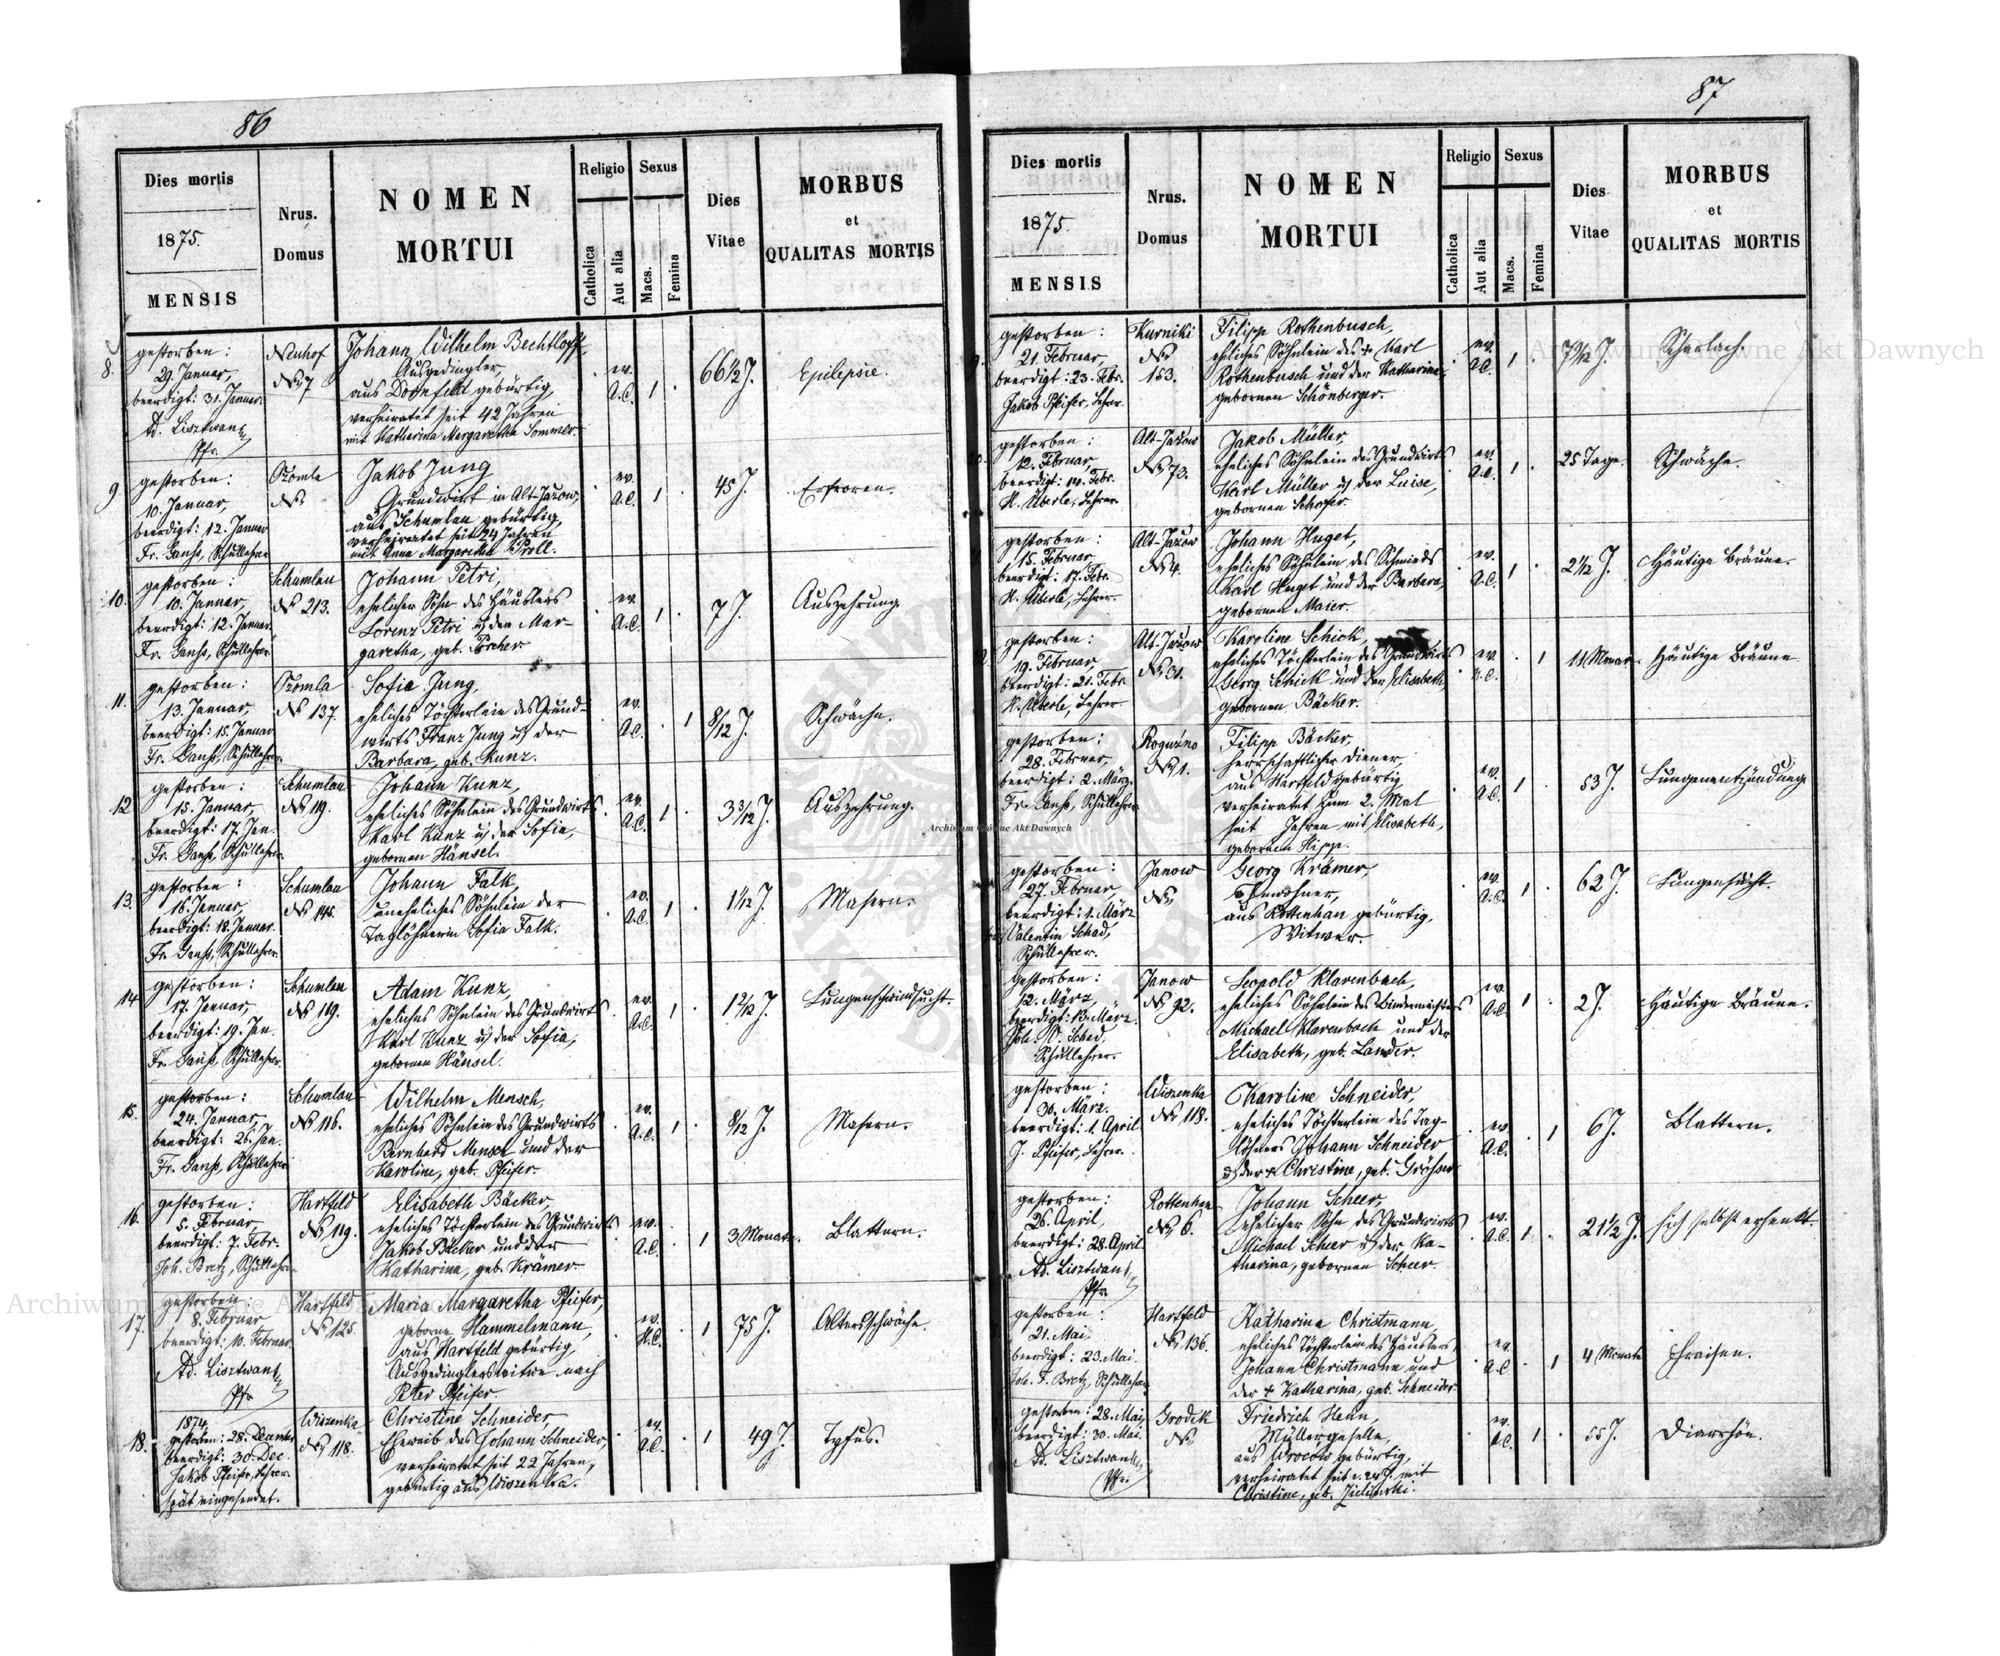 86
Dies mortis
1875.
MENSIS
Nrus.
Domus
NOMEN
MORTUI
Religio
Catholica
Aut alia
Sexus
Macs.
Femina
Dies
Vitae
MORBUS
et
QUALITAS MORTIS
8.
gestorben:
29. Januar,
beerdigt: 31. Januar.
Ad. Lisztwan
Pfr.
Neuhof
No 7
Johann Wilhelm Bechtloff,
Ausgedingler,
aus Dornfeld gebürtig,
verheiratet seit 42 Jahren
mit Katharina Margaretha Sommer.
ev.
A.C.
1
66 1/2 J.
Epilepsie.
9.
gestorben:
10. Januar,
beerdigt: 12. Januar
Fr. Ganß, Schullehrer
Ożomla
No
Jakob Jung
Grundwirt in Alt-Jazow,
aus Schumlau gebürtig,
verheiratet seit 24 Jahren
mit Anna Margaretha Proll.
ev.
A.C.
1
45 J.
Erfroren.
10.
gestorben:
10. Januar,
beerdigt: 12. Januar.
Fr. Ganß, Schullehrer
Schumlau
No 213.
Johann Petri,
ehelicher Sohn des Häuslers
Lorenz Petri u der Mar-
garetha, geb. Porcher
ev.
A.C.
1
7 J.
Auszehrung
11.
gestorben:
13. Januar,
beerdigt: 15. Januar
Fr. Ganß, Schullehrer
Ożomla
No 137.
Sofia Jung,
eheliches Töchterlein des Grund-
wirts Franz Jung u der
Barbara, geb. Kunz.
ev.
A.C.
1
8/12 J.
Schwäche.
12
gestorben:
15. Januar,
beerdigt: 17. Jan.
Fr. Ganß, Schullehrer.
Schumlau
No 119.
Johann Kunz,
eheliches Söhnlein des Grundwirts
Karl Kunz u der Sofia,
gebornen Hänsel.
ev.
A.C.
1
3 3/12 J.
Auszehrung.
13.
gestorben:
16. Januar,
beerdigt: 18. Januar.
Fr. Ganß, Schullehrer.
Schumlau
No 145.
Johann Falk,
uneheliches Söhnlein der
Taglöhnerin Sofia Falk.
ev.
A.C.
1
1 1/12 J.
Masern.
14
gestorben:
17. Januar,
beerdigt: 19. Jan.
Fr. Ganß, Schullehrer.
Schumlau
No 119.
Adam Kunz,
eheliches Söhnlein des Grundwirts
Karl Kunz u der Sofia,
gebornen Hänsel.
ev.
A.C.
1
Lungenschwindsucht.
15.
gestorben:
24. Januar,
beerdigt: 26. Jan.
Fr. Ganß, Schullehrer
Schumlau
No 116.
Wilhelm Mensch,
eheliches Söhnlein des Grundwirts
Bernhard Mensch und der
Karoline, geb. Pfeifer.
ev.
A.C.
1
8/12 J.
Masern.
16.
gestorben:
5. Februar,
beerdigt: 7. Febr.
Joh. Bretz, Schullehrer
Hartfeld
No 119.
Elisabeth Bäcker,
eheliches Töchterlein des Grundwirts
Jakob Bäcker und der
Katharina, geb. Krämer.
ev.
A.C.
1
3 Monate.
Blattern.
17.
gestorben:
8. Februar
beerdigt: 10. Februar.
Ad. Lisztwan
Pfr
Hartfeld
No 125.
Maria Margaretha Pfeifer,
geborne Hammelmann,
aus Hartfeld gebürtig,
Ausgedinglerswitwe nach
Peter Pfeifer.
ev.
A.C.
1
75 J.
Altersschwäche
18.
1874
gestorben: 28. Dezember
beerdigt: 30. Dec.
Jakob Pfeifer, Lehrer.
spät eingesendet.
Wiszenka
No 118.
Christine Schneider,
Eheweib des Johann Schneider,
verheiratet seit 22 Jahren,
gebürtig aus Wiszenka.
ev.
A.C.
1
49 J.
Typus.
87
Dies mortis
1875.
MENSIS
Nrus.
Domus
NOMEN
MORTUI
Religio
Catholica
Aut alia
Sexus
Macs.
Femina
Dies
Vitae
MORBUS
et
QUALITAS MORTIS
gestorben:
21. Februar,
beerdigt: 23. Febr.
Jakob Pfeifer, Lehrer.
Kurniki
No
153.
Filipp Rothenbusch,
eheliches Söhnlein des + Karl
Rothenbusch und der Katharina,
gebornen Schönberger.
ev.
A.C.
1
Scharlach.
gestorben:
12. Februar,
beerdigt: 14. Febr.
H. Überle, Lehrer.
Alt-Jazow
No 73.
Jakob Müller,
eheliches Söhnlein des Grundwirts
Karl Müller u der Luise,
gebornen Schäfer.
ev.
A.C.
1
25 Tage.
Schwäche.
gestorben:
15. Februar
beerdigt: 17. Febr.
H. Überle, Lehrer.
Alt-Jazow
No 4.
Johann Huget,
eheliches Söhnlein des Schmieds
Karl Huget und der Barbara,
gebornen Maier.
ev.
A.C.
1
2 1/2 J.
Häutige Bräune.
gestorben:
19. Februar
beerdigt: 21. Febr.
H. Überle, Lehrer.
Alt-Jazow
No 31.
Karoline Schick,
eheliches Töchterlein des Grundwirts
Georg Schick und der Elisabeth,
gebornen Bäcker.
ev.
A.C.
1
11 Monat.
Häutige Bräune
gestorben:
28. Februar
beerdigt: 2. März.
Fr. Ganß, Schullehrer
Roguźno
No 1.
Filipp Bäcker,
herrschaftlicher Diener,
aus Hartfeld gebürtig
verheiratet zum 2. Mal
seit Jahren mit Elisabeth,
gebornen Hipp.
ev.
A.C.
1
53 J.
Lungenentzündung
gestorben:
27. Februar,
beerdigt: 1. März
Valentin Schad,
Schullehrer.
Janow
No
Georg Krämer,
Inwohner,
aus Rottenhan gebürtig,
Witwer.
ev.
A.C.
1
62 J.
Lungensucht.
gestorben:
12. März,
beerdigt: 13. März.
Joh. V. Schad,
Schullehrer.
Janow
No 92.
Leopold Klarenbach,
eheliches Söhnlein des Bindermeisters
Michael Klarenbach und der
Elisabeth, geb. Lander.
ev.
A.C.
1
2 J.
Häutige Bräune.
gestorben:
30. März.
beerdigt: 1. April
J. Pfeifer, Lehrer.
Wiszenka
No 118.
Karoline Schneider,
eheliches Töchterlein des Tag-
löhners Johann Schneider
u der + Christine, geb. Größer
ev.
A.C.
1
6 J.
Blattern.
gestorben:
26. April,
beerdigt: 28. April
Ad. Lisztwan
Pfr
Rottenhan
No 6.
Johann Scheer,
ehelicher Sohn des Grundwirts
Michael Scheer u der Ka-
tharina, gebornen Scheer.
ev.
A.C.
1
21 1/2 J.
sich selbst erhenkt.
gestorben:
21. Mai.
beerdigt: 23. Mai.
Joh. F. Bretz, Schullehrer
Hartfeld
No 136.
Katharina Christmann,
eheliches Töchterlein des Häuslers,
Johann Christmann und
der + Katharina, geb. Schneider.
ev.
A.C.
1
4 Monate
Fraisen.
gestorben: 28. Mai
beerdigt: 30. Mai.
Ad. Lisztwan
Pfr.
Grodek
No
Friedrich Henn,
Müllergeselle,
aus Wrocow gebürtig,
verheiratet seit c. 24 J. mit
Christine, geb. Zielinski.
ev.
A.C.
1
55 J.
Diarrhöe.
Archiwum Główne Akt Dawnych
Archiwum Główne Akt Dawnych
Archiwum Główne Akt Dawnych